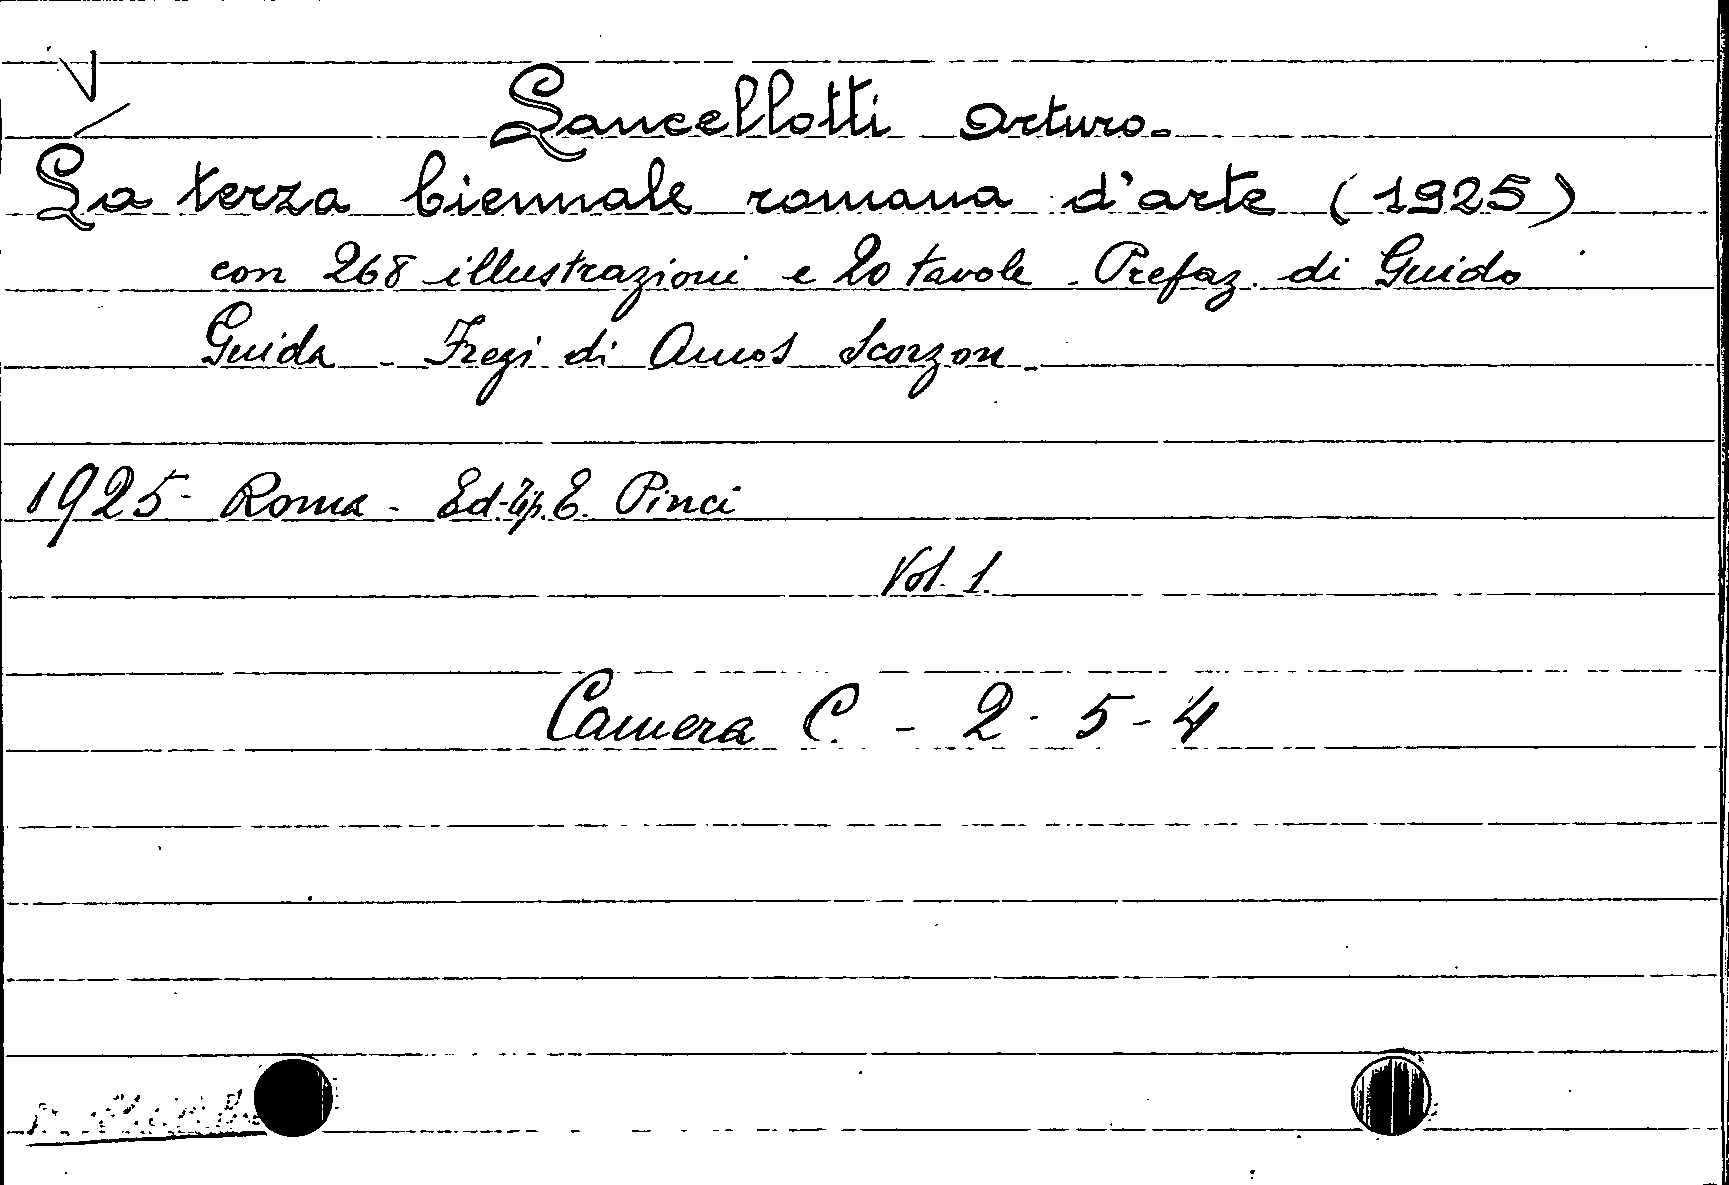 Lancellotti Arturo.
La terza biennale romana d'arte (1925)
con 268 illustrazioni e 20 tavole - Prefaz. di Guido
Guida - Fregi di Amos Scorzon -
1925 - Roma - Ed-tip. E. Pinci
Vol. 1.
Camera C. - 2 - 5 - 4